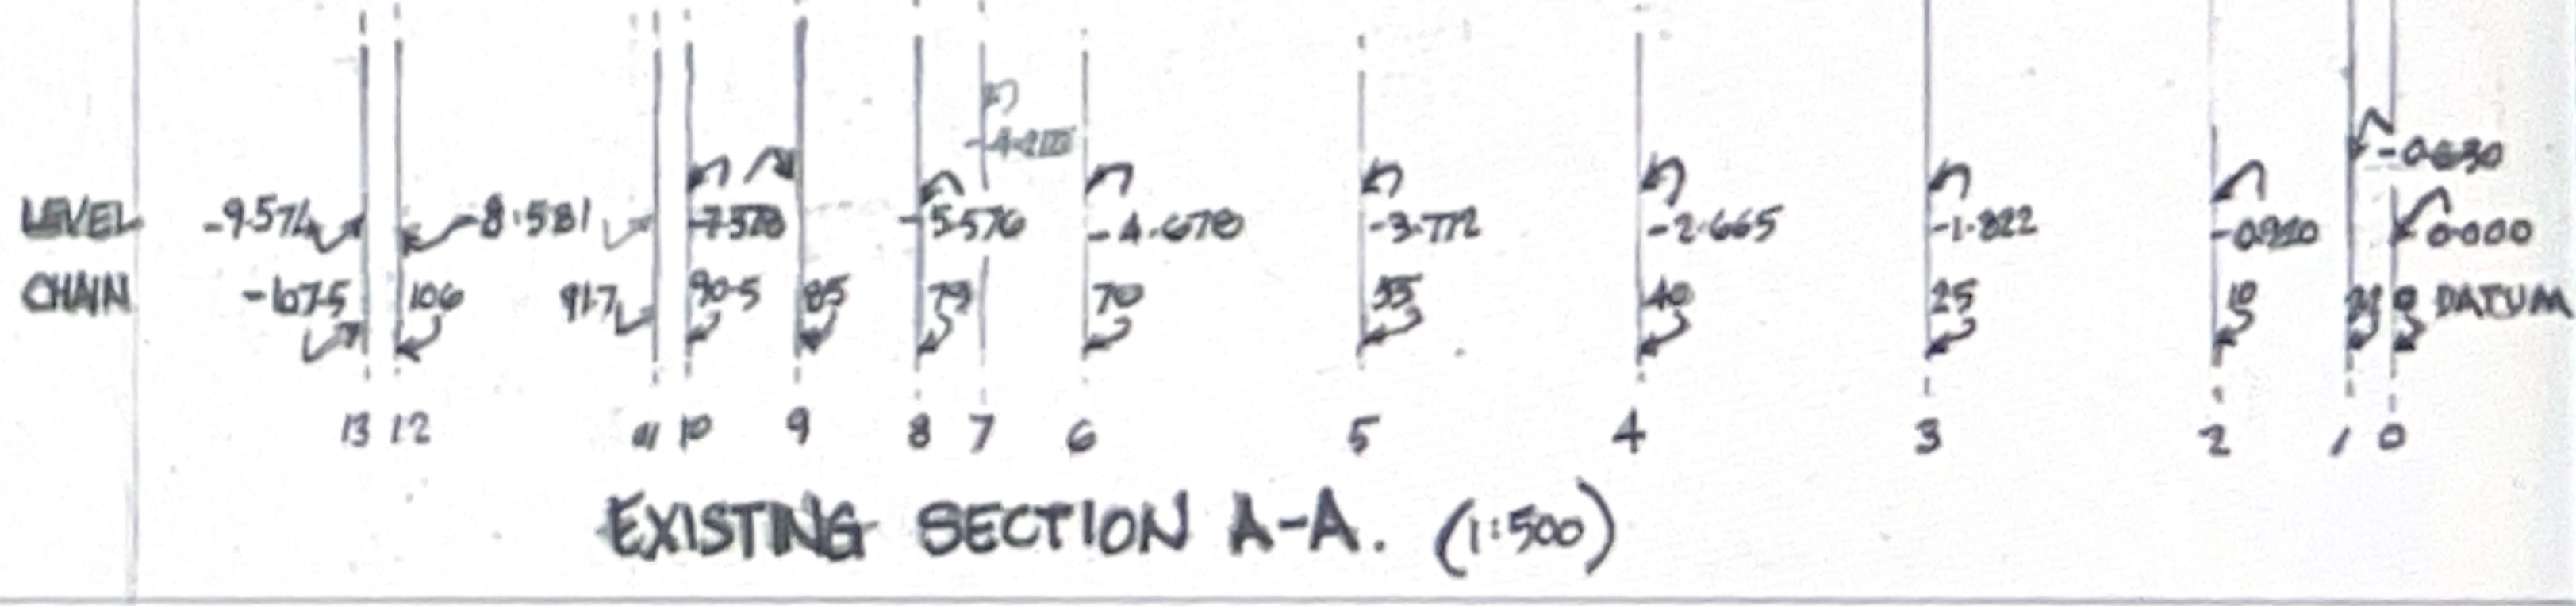 -0.630
LEVEL -9.574 -8.581 -7.578 -5.576 -4.678 -3.772 -2.665 -1.822 -0.920 0.000
CHAIN -107.5 106 91.7 90.5 85 79 70 55 40 25 10 0 DATUM
13 12 11 10 9 8 7 6 5 4 3 2 1 0
EXISTING SECTION A-A. (1:500)